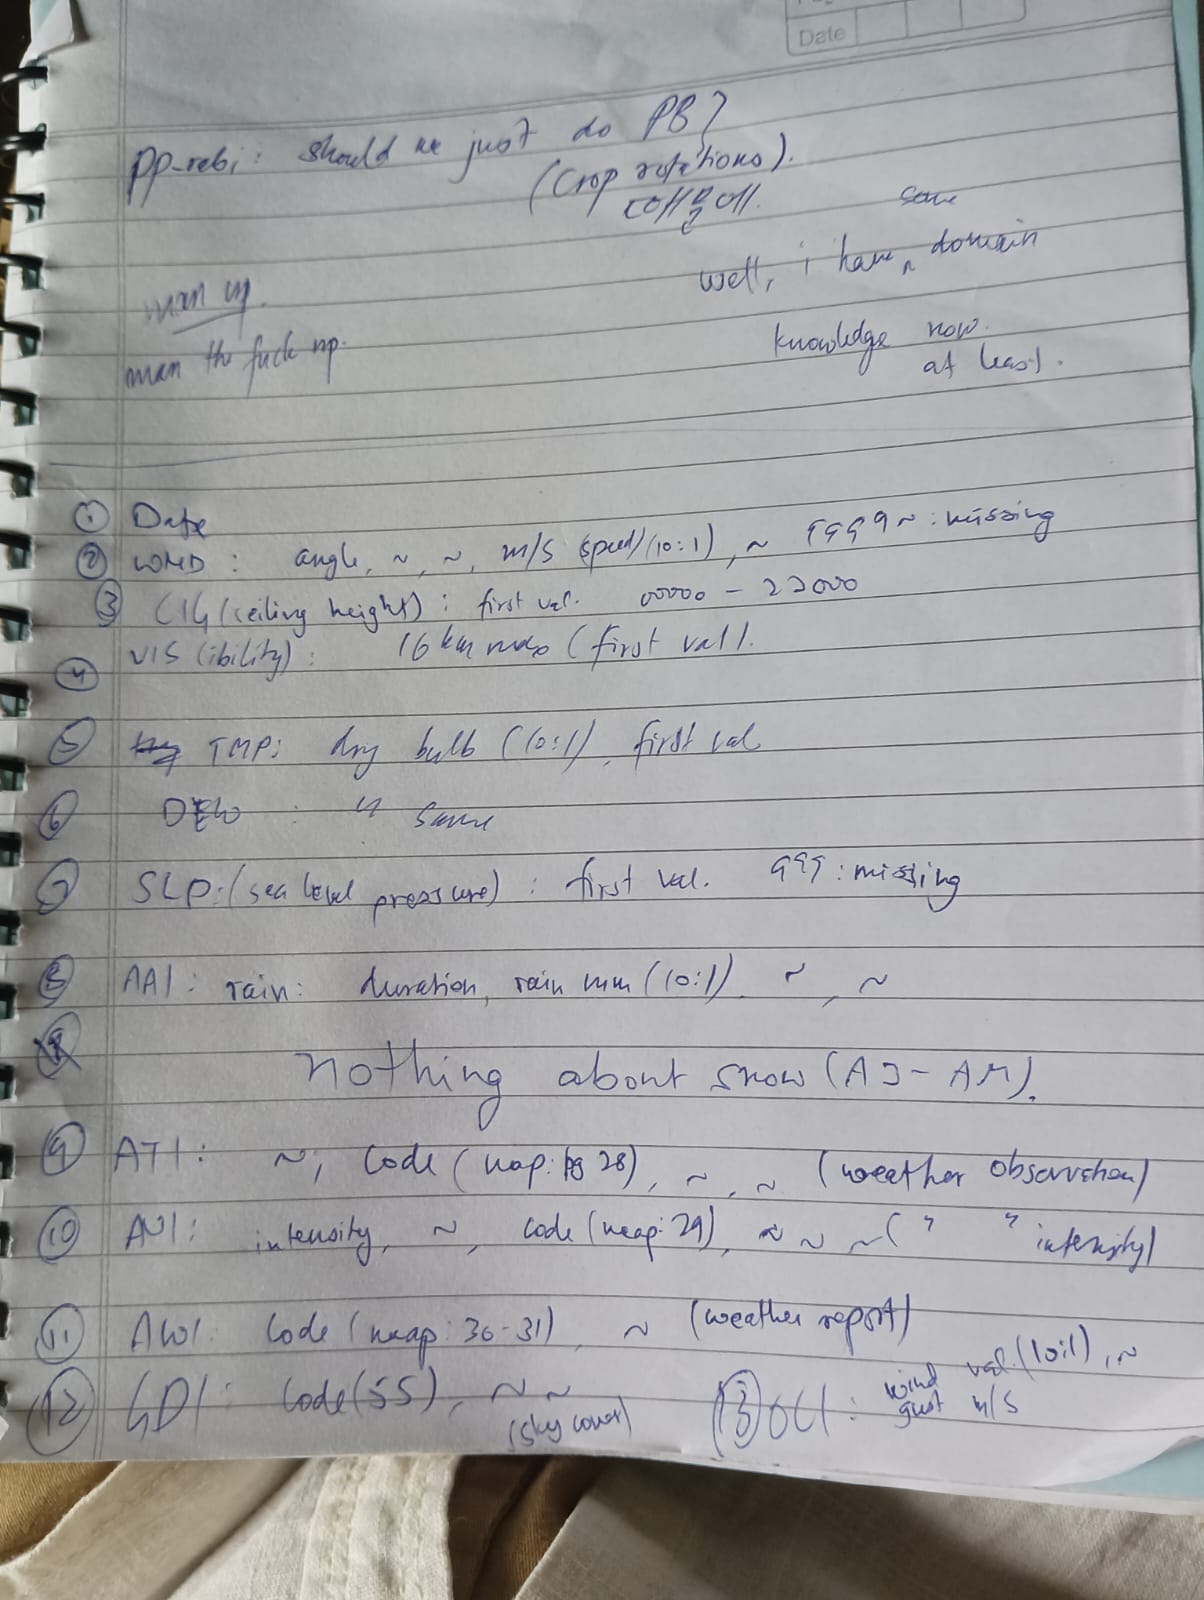 Date
pp-rabi: should we just do PB?
(Crop rotations).
some
well, i have ^ domain
knowledge now.
at least.
man up.
man the fuck up.
① Date
② WND: angle, ~, ~, m/s speed (10:1), ~ 9999 ~: missing
③ CIG (ceiling height): first val. 00000 - 22000
④ VIS (ibility): 16 km max (first val).
⑤ TMP: dry bulb (10:1), first val
⑥ DEW: " same
⑦ SLP: (sea level pressure): first val. 999: missing
⑧ AA1: rain: duration, rain mm (10:1) ~, ~
nothing about snow (AJ-AM).
⑨ AT1: ~, code (map: pg 28), ~, ~ (weather observation)
⑩ AU1: intensity, ~, code (map: 29), ~ ~ ~ (" " intensity)
⑪ AW1: code (map: 30-31), ~ (weather report)
⑫ GD1: code (55), ~ ~ (sky cover)
⑬ OC1: wind gust val. (10:1), ~ m/s